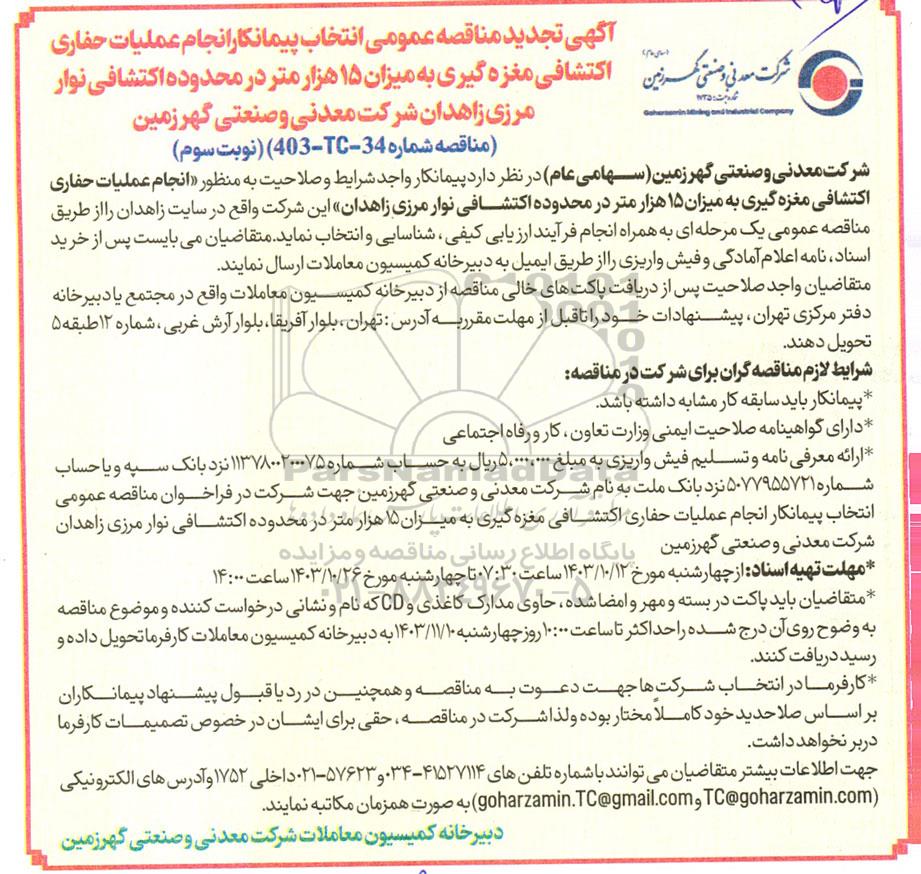 آگهی تجدید مناقصه عمومی انتخاب پیمانکار انجام عملیات حفاری
اکتشافی مغزه گیری به میزان ۱۵ هزار متر در محدوده اکتشافی نوار
مرزی زاهدان شرکت معدنی و صنعتی گهرزمین
(مناقصه شماره 34-TC-403) (نوبت سوم)
(سهامی عام)
شرکت معدنی و صنعتی گهرزمین
Goharzamin Mining and Industrial Company
شرکت معدنی و صنعتی گهرزمین (سهامی عام) در نظر دارد پیمانکار واجد شرایط و صلاحیت به منظور «انجام عملیات حفاری
اکتشافی مغزه گیری به میزان ۱۵ هزار متر در محدوده اکتشافی نوار مرزی زاهدان» این شرکت واقع در سایت زاهدان را از طریق
مناقصه عمومی یک مرحله ای به همراه انجام فرآیند ارزیابی کیفی، شناسایی و انتخاب نماید. متقاضیان می بایست پس از خرید
اسناد، نامه اعلام آمادگی و فیش واریزی را از طریق ایمیل به دبیرخانه کمیسیون معاملات ارسال نمایند.
متقاضیان واجد صلاحیت پس از دریافت پاکت های خالی مناقصه از دبیرخانه کمیسیون معاملات واقع در مجتمع یا دبیرخانه
دفتر مرکزی تهران، پیشنهادات خود را تا قبل از مهلت مقرر به آدرس: تهران، بلوار آفریقا، بلوار آرش غربی، شماره ۱۲ طبقه ۵
تحویل دهند.
شرایط لازم مناقصه گران برای شرکت در مناقصه:
*پیمانکار باید سابقه کار مشابه داشته باشد.
*دارای گواهینامه صلاحیت ایمنی وزارت تعاون، کار و رفاه اجتماعی
*ارائه معرفی نامه و تسلیم فیش واریزی به مبلغ ۵،۰۰۰،۰۰۰ ریال به حساب شماره ۱۱۳۷۸۰۰۲۰۰۰۷۵ نزد بانک سپه و یا حساب
شماره ۵۰۷۷۹۵۵۷۲۱ نزد بانک ملت به نام شرکت معدنی و صنعتی گهرزمین جهت شرکت در فراخوان مناقصه عمومی
انتخاب پیمانکار انجام عملیات حفاری اکتشافی مغزه گیری به میزان ۱۵ هزار متر در محدوده اکتشافی نوار مرزی زاهدان
شرکت معدنی و صنعتی گهرزمین
*مهلت تهیه اسناد: از چهارشنبه مورخ ۱۴۰۳/۱۰/۱۲ ساعت ۰۷:۳۰ تا چهارشنبه مورخ ۱۴۰۳/۱۰/۲۶ ساعت ۱۴:۰۰
*متقاضیان باید پاکت در بسته و مهر و امضا شده، حاوی مدارک کاغذی و CD که نام و نشانی درخواست کننده و موضوع مناقصه
به وضوح روی آن درج شده را حداکثر تا ساعت ۱۰:۰۰ روز چهارشنبه ۱۴۰۳/۱۱/۱۰ به دبیرخانه کمیسیون معاملات کارفرما تحویل داده و
رسید دریافت کنند.
*کارفرما در انتخاب شرکت ها جهت دعوت به مناقصه و همچنین در رد یا قبول پیشنهاد پیمانکاران
بر اساس صلاحدید خود کاملاً مختار بوده و لذا شرکت در مناقصه، حقی برای ایشان در خصوص تصمیمات کارفرما
در بر نخواهد داشت.
جهت اطلاعات بیشتر متقاضیان می توانند با شماره تلفن های ۴۱۵۲۷۱۱۴-۰۳۴ و ۵۷۶۲۳-۰۲۱ داخلی ۱۷۵۲ و آدرس های الکترونیکی
(TC@goharzamin.com و goharzamin.TC@gmail.com) به صورت همزمان مکاتبه نمایند.
دبیرخانه کمیسیون معاملات شرکت معدنی و صنعتی گهرزمین
ParsNamadData
پایگاه اطلاع رسانی مناقصه و مزایده
۰۲۱-۸۸۳۴۹۶۷۰-۵